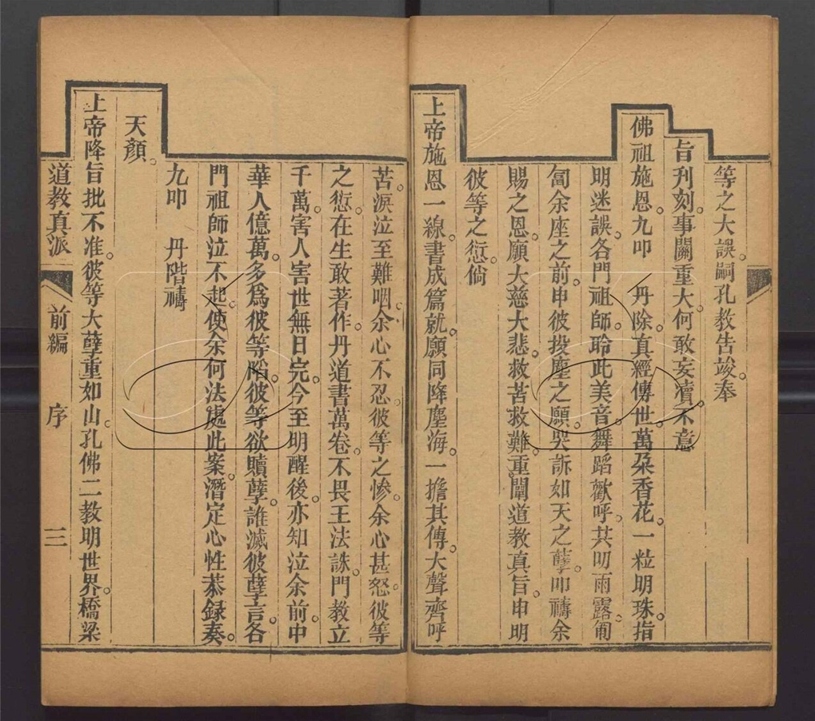 等之大誤嗣孔教告竣奉
旨刋刻事關重大何敢妄瀆不意
佛祖施恩九叩 丹除真經傳世萬朶香花一粒明珠指
明迷誤各門祖師聆此美音舞蹈歡呼共叨雨露匍
匐余座之前申彼投塵之願哭訴如天之孽叩禱余
賜之恩願大慈大悲救苦救難重闡道教真旨申明
彼等之愆倘
上帝施恩一線書成篇就願同降塵海一擔其傳大聲齊呼
苦淚泣至難咽余心不忍彼等之慘余心甚怒彼等
之愆在生敢著作丹道書萬卷不畏王法誅門教立
千萬害人害世無日完今至明醒後亦知泣余前中
華人億萬多爲彼等陷彼等欲贖孽誰滅彼孽言各
門祖師泣不起使余何法處此案潛定心性恭録奏
九叩 丹階禱
天顏
上帝降旨批不准彼等大孽重如山孔佛二教明世界橋梁
道教真派 前編 序 三